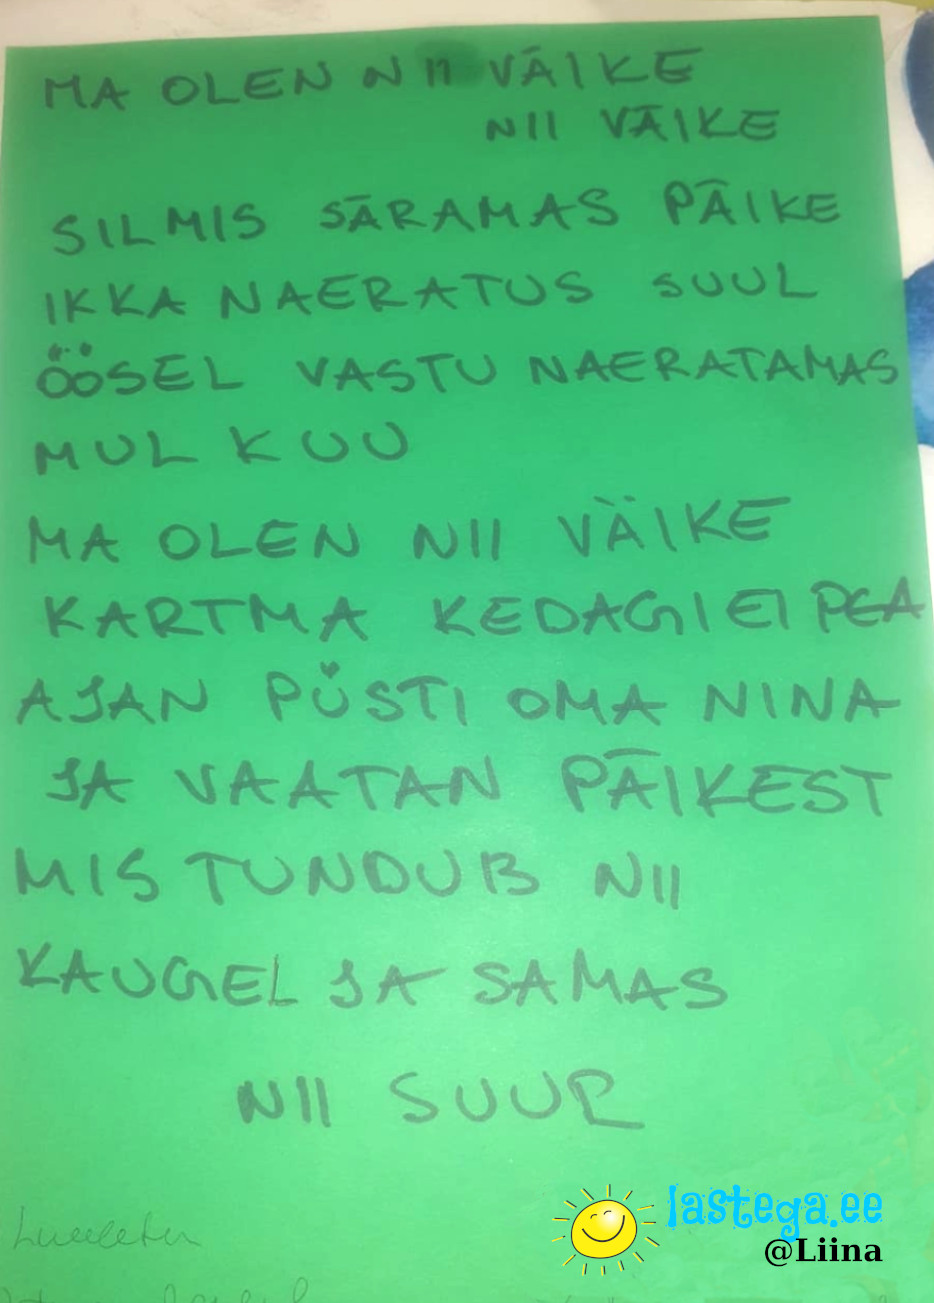 MA OLEN NII VÄIKE
NII VÄIKE
SILMIS SÄRAMAS PÄIKE
IKKA NAERATUS SUUL
ÖÖSEL VASTU NAERATAMAS
MUL KUU
MA OLEN NII VÄIKE
KARTMA KEDAGI EI PEA
AJAN PÜSTI OMA NINA
JA VAATAN PÄIKEST
MIS TUNDUB NII
KAUGEL JA SAMAS
NII SUUR
lastega.ee
@Liina